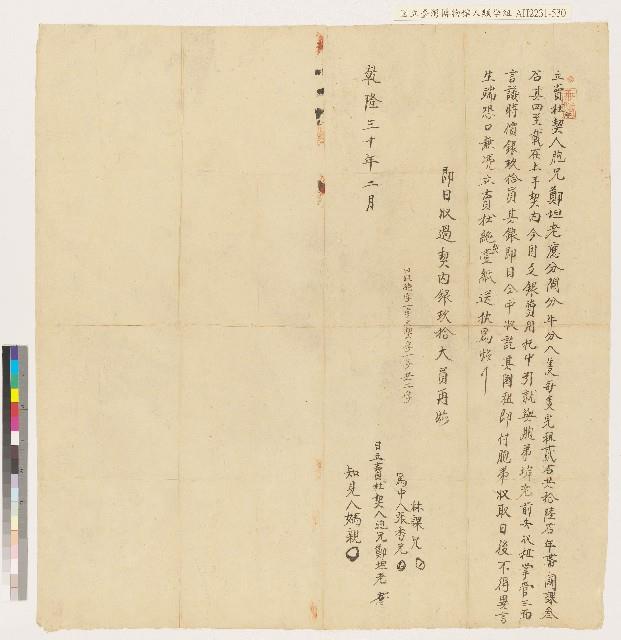 國立臺灣博物館人類學組 AH2231-530
立賣杜契人胞兄鄭坦老應分鬮分牛分八隻每隻完租貳石共拾陸石年帶開課叁
石其四至載在上手契內今因乏銀費用托中引就與胞弟 老前去收租掌管三面
言議時價銀玖拾員其銀即日仝中收訖其園租即付胞弟收取日後不得異言
生端恐口無憑立賣杜絕 壹紙送執為炤
即日收過契內銀玖拾大員再炤
乾隆三十年二月
為中人張秀兄
日立賣杜契人胞兄鄭坦老
知見人媽親